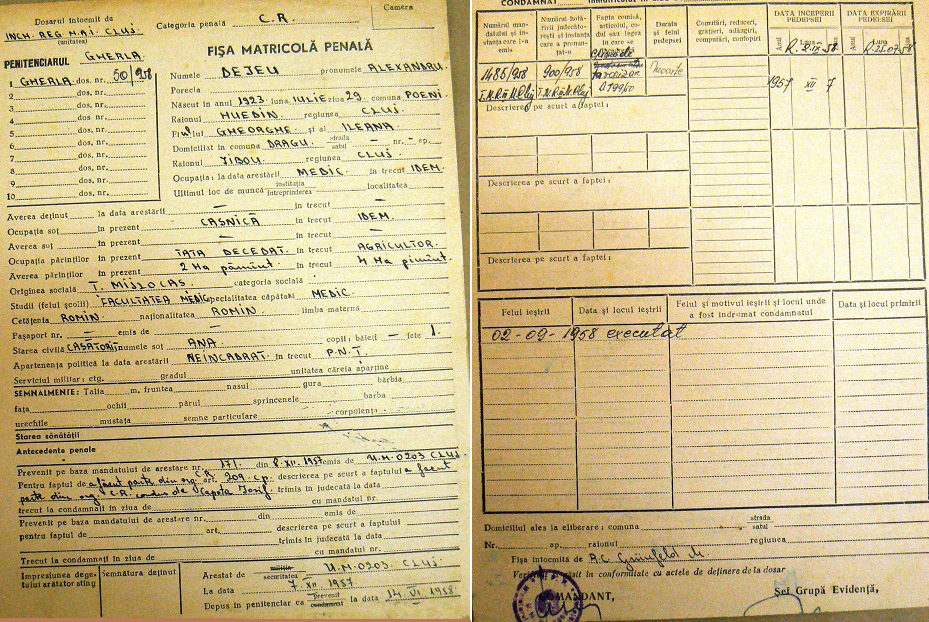 Dosarul întocmit de
INCH. REG. M.A.I. CLUJ.
(unitatea)
Categoria penală C.R.
Camera
PENITENCIARUL GHERLA
FIȘA MATRICOLĂ PENALĂ
1 GHERLA dos. nr. 50/958
2 dos. nr.
3 dos. nr.
4 dos. nr.
5 dos. nr.
6 dos. nr.
7 dos. nr.
8 dos. nr.
9 dos. nr.
10 dos. nr.
Numele DEJEU pronumele ALEXANDRU
Porecla
Născut în anul 1923 luna IULIE ziua 29 comuna POENI
Raionul HUEDIN regiunea CLUJ.
Fiul GHEORGHE. și al ILEANA
Domiciliat în comuna DRAGU. strada satul — nr. — ap.
Raionul JIBOU regiunea CLUJ.
Ocupația: la data arestării MEDIC. în trecut IDEM.
Ultimul loc de muncă instituția întreprinderea localitatea
Averea deținut la data arestării — în trecut —
Ocupația soț în prezent CASNICĂ în trecut IDEM.
Averea soț în prezent — în trecut —
Ocupația părinților în prezent TATA DECEDAT. în trecut AGRICULTOR.
Averea părinților în prezent 2 Ha pămînt. în trecut 4 Ha pămînt.
Originea socială Ț. MIJLOCAȘ. categoria socială
Studii (felul școlii) FACULTATEA MEDIC specialitatea căpătată MEDIC.
Cetățenia ROMIN. naționalitatea ROMIN. limba maternă
Pașaport nr. — emis de —
Starea civilă CĂSĂTORIT numele soț ANA copii: băieți — fete 1.
Apartenența politică la data arestării NEINCADRAT. în trecut P.N.Ț.
Serviciul militar: ctg. gradul unitatea căreia aparține
SEMNALMENTE: Talia m. fruntea nasul gura bărbia
fața ochii părul sprincenele barba
urechile mustața semne particulare corpolența
Starea sănătății
Antecedente penale
Prevenit pe baza mandatului de arestare nr. 171. din 8.XII.1957 emis de U.M.0203 CLUJ.
Pentru faptul de a făcut parte din org. C.R. art. 209 c.p. descrierea pe scurt a faptului a făcut
parte din org. C.R. condus de Capota Iosif trimis în judecată la data
trecut la condamnați în ziua de cu mandatul nr.
Prevenit pe baza mandatului de arestare nr. din emis de
pentru faptul de art. descrierea pe scurt a faptului
trimis în judecată la data
Trecut la condamnați în ziua de cu mandatul nr.
Impresiunea degetului arătător stîng
Semnătura deținut
Arestat de miliția securitatea U.M.0203. CLUJ
La data 7. XII. 1957
Depus în penitenciar ca prevenit condamnat la data 14. VI. 1958.
CONDAMNAT
Numărul mandatului și instanța care l-a emis
Numărul hotărîrii judecătorești și instanța care a pronunțat-o
Fapta comisă, articolul din codul sau legea în care se
Durata și felul pedepsei
Comutări, reduceri, grațieri, adăugiri, computări, contopiri
DATA ÎNCEPERII PEDEPSEI
DATA EXPIRĂRII PEDEPSEI
Anul Luna Ziua
Anul Luna Ziua
1485/958 900/958 moarte 1957 XII 7
Descrierea pe scurt a faptei:
Descrierea pe scurt a faptei:
Descrierea pe scurt a faptei:
Felul ieșirii
Data și locul ieșirii
Felul și motivul ieșirii și locul unde a fost îndrumat condamnatul
Data și locul primirii
02-09-1958 executat
Domiciliul ales la eliberare: comuna strada satul
Nr. ap. raionul regiunea
Fișa întocmită de
în conformitate cu actele de deținere de la dosar
COMANDANT,
Șef Grupă Evidență,